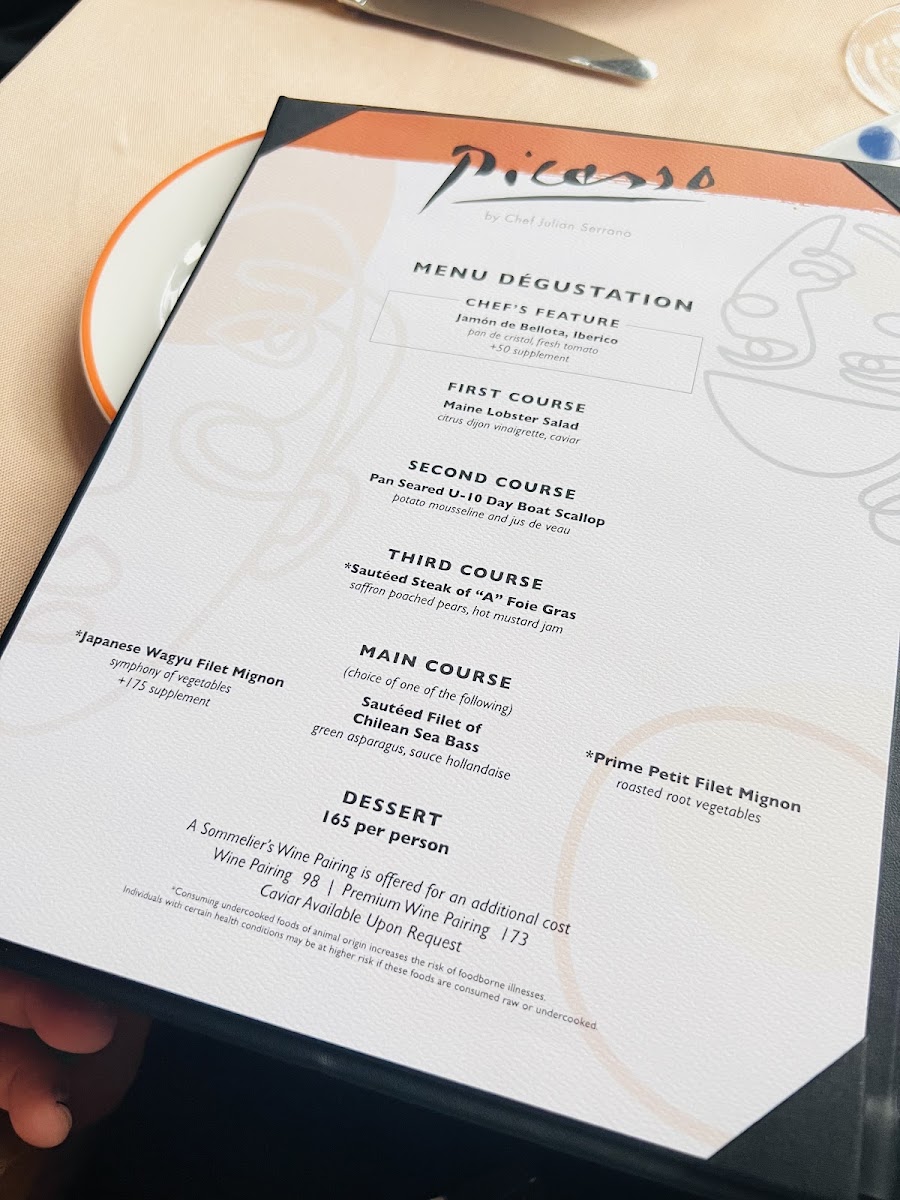 Picasso
by Chef Julian Serrano
MENU DÉGUSTATION
CHEF'S FEATURE
Jamón de Bellota, Iberico
pan de cristal, fresh tomato
+50 supplement
FIRST COURSE
Maine Lobster Salad
citrus dijon vinaigrette, caviar
SECOND COURSE
Pan Seared U-10 Day Boat Scallop
potato mousseline and jus de veau
THIRD COURSE
*Sautéed Steak of “A” Foie Gras
saffron poached pears, hot mustard jam
MAIN COURSE
(choice of one of the following)
*Japanese Wagyu Filet Mignon
symphony of vegetables
+175 supplement
Sautéed Filet of
Chilean Sea Bass
green asparagus, sauce hollandaise
*Prime Petit Filet Mignon
roasted root vegetables
DESSERT
165 per person
A Sommelier's Wine Pairing is offered for an additional cost
Wine Pairing 98 | Premium Wine Pairing 173
Caviar Available Upon Request
*Consuming undercooked foods of animal origin increases the risk of foodborne illnesses.
Individuals with certain health conditions may be at higher risk if these foods are consumed raw or undercooked.